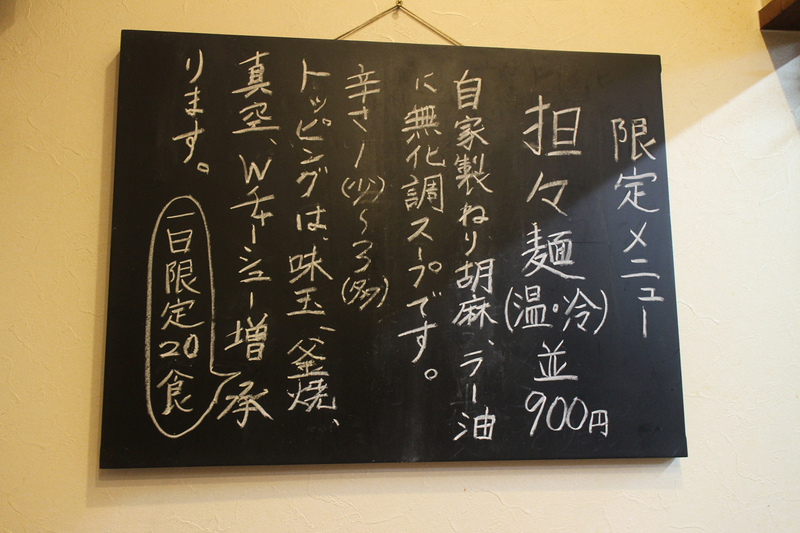 限定メニュー
担々麺(温・冷)並900円
自家製ねり胡麻、ラー油
に無化調スープです。
辛さ1(少)〜3(多)
トッピングは、味玉、釜焼、
真空、Wチャーシュー増承
ります。
一日限定20食